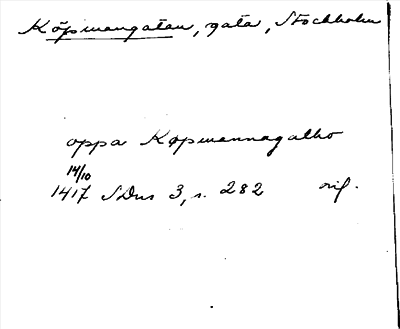 Köpmangatan, gata, Stockholm
oppa Køpmannagatho
14/10
1417 SDns 3, s. 282 orig.